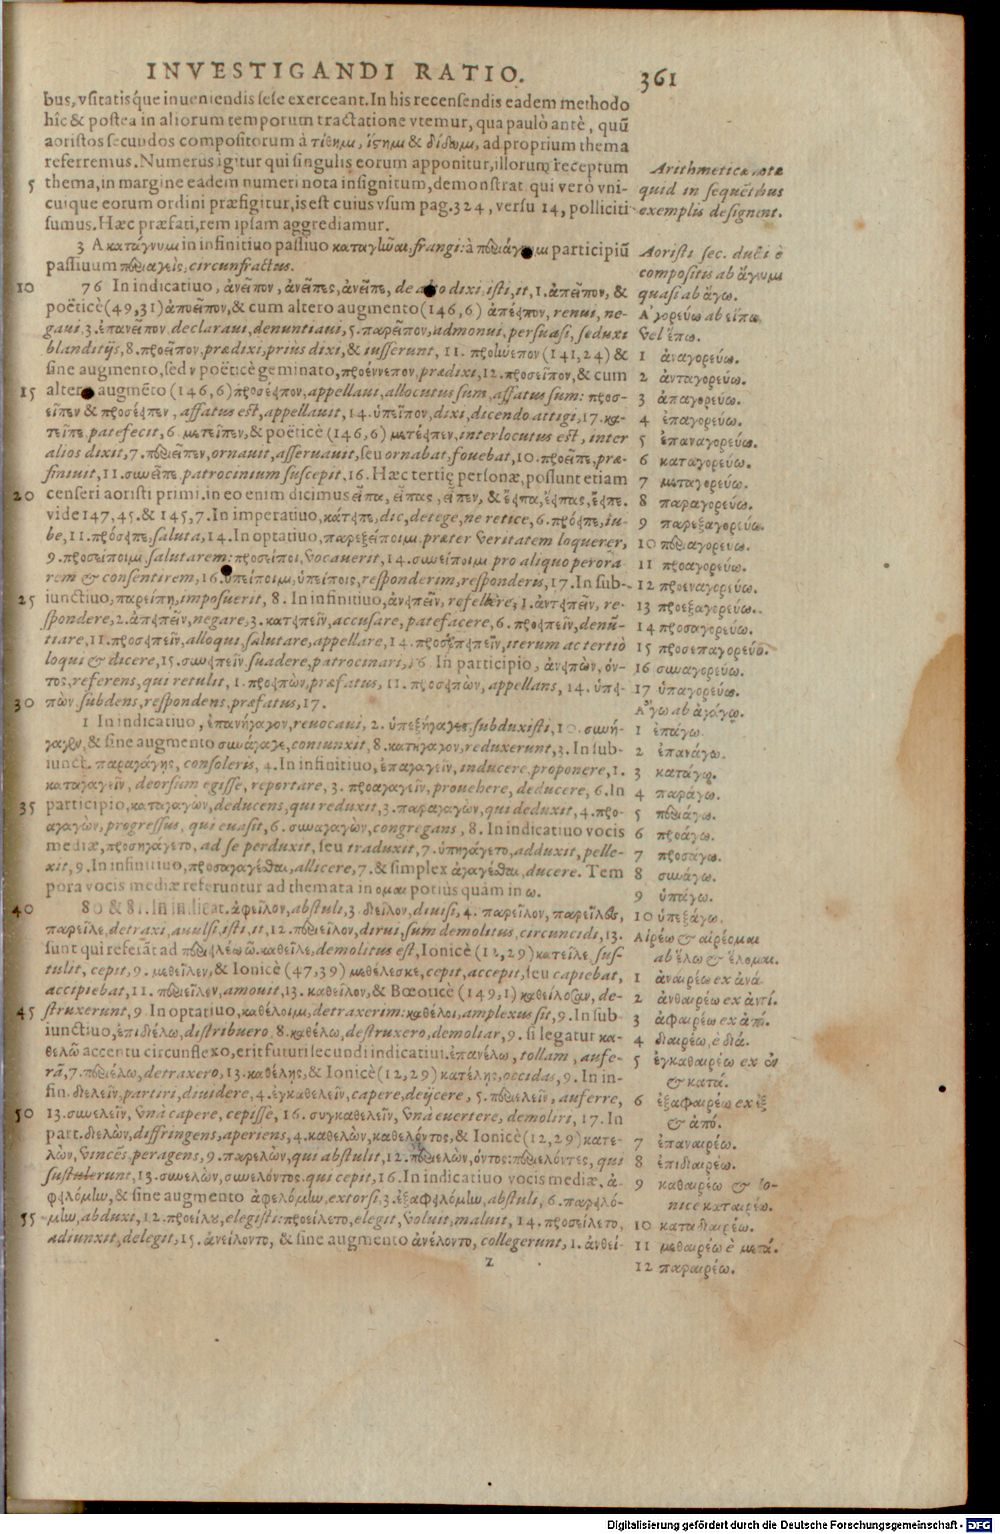 INVESTIGANDI RATIO. 361
bus, vsitatisque inueniendis sese exerceant. In his recensendis eadem methodo
hîc & postea in aliorum temporum tractatione vtemur, qua paulò antè, quũ
aoristos secundos compositorum à τίθημι, ἵστημι & δίδωμι, ad proprium thema
referremus. Numerus igitur qui singulis eorum apponitur, illorum receptum
5 thema, in margine eadem numeri nota insignitum, demonstrat qui verò vni-
cuique eorum ordini præfigitur, is est cuius vsum pag. 324, versu 14, polliciti
sumus. Hæc præfati, rem ipsam aggrediamur.
3 A κατάγνυμι in infinitiuo passiuo καταγῆναι, frangi: à participiũ
passiuum περιαγεὶς, circunfractus.
10 76 In indicatiuo, ἀνεῖπον, ἀνεῖπες, ἀνεῖπε, dixi, isti, it, 1. ἀπεῖπον, &
poëticè (49, 31) ἀποεῖπον, & cum altero augmento (146, 6) ἀπέειπον, renui, ne-
gaui, 3. ἐπανεῖπον, declaraui, denuntiaui, 5. παρεῖπον, admonui, persuasi, seduxi
blanditijs, 8. προεῖπον, prædixi, priùs dixi, & iusserunt, 11. (141, 24) &
sine augmento, sed ν poëticè geminato, προέννεπον, prædixi, 12. προσεῖπον, & cum
15 altero augmẽto (146, 6) προσέειπον, appellaui, allocutus sum, affatus sum: προσ-
εῖπεν & προσέειπεν, affatus est, appellauit, 14. ὑπεῖπον, dixi, dicendo attigi, 17. κα-
τεῖπε, patefecit, 6. μετεῖπεν, & poëticè (146, 6) μετέειπεν, interlocutus est, inter
alios dixit, 7. περιεῖπεν, ornauit, asseruauit, seu ornabat, fouebat, 10. προεῖπε, præ-
finiuit, 11. συνεῖπε, patrocinium suscepit, 16. Hæc tertię personæ, possunt etiam
20 censeri aoristi primi. in eo enim dicimus εἶπα, εἶπας, εἶπεν, & ἔειπα, ἔειπας, ἔειπε.
vide 147, 45. & 145, 7. In imperatiuo, κάτειπε, dic, detege, ne retice, 6. πρόειπε, iu-
be, 11. πρόσειπε, saluta, 14. In optatiuo, παρεξείποιμι, præter veritatem loquerer,
9. προσείποιμι, salutarem: προσείποι, vocauerit, 14. συνείποιμι pro aliquo perorà
rem & consentirem, 16. ὑπείποιμι, ὑπείποις, responderim, responderis, 17. In sub-
25 iunctiuo, παρείπῃ, imposuerit, 8. In infinitiuo, ἀνειπεῖν, refellere, 1. ἀντειπεῖν, re-
spondere, 2. ἀπειπεῖν, negare, 3. κατειπεῖν, accusare, patefacere, 6. προειπεῖν, denũ-
tiare, 11. προσειπεῖν, alloqui, salutare, appellare, 14. προσεπειπεῖν, iterum ac tertiò
loqui & dicere, 15. συνειπεῖν, suadere, patrocinari, 16. In participio, ἀνειπὼν, όν-
τος, referens, qui retulit, 1. προειπὼν, præfatus, 11. προσειπὼν, appellans, 14. ὑπει-
30 πὼν subdens, respondens, præfatus, 17.
1 In indicatiuo, ἐπανήγαγον, reuocaui, 2. ὑπεξήγαγες, subduxisti, 10. συνή-
γαγεν, & sine augmento συνάγαγε, coniunxit, 8. κατήγαγον, reduxerunt, 3. In sub-
iunct. παραγάγῃς, consoleris, 4. In infinitiuo, ἐπαγαγεῖν, inducere, proponere, 1.
καταγαγεῖν, deorsum egisse, reportare, 3. προαγαγεῖν, prouehere, deducere, 6. In
35 participio, καταγαγὼν, deducens, qui reduxit, 3. παραγαγὼν, qui deduxit, 4. προ-
αγαγὼν, progressus, qui euasit, 6. συναγαγὼν, congregans, 8. In indicatiuo vocis
mediæ, προσηγάγετο, ad se perduxit, seu traduxit, 7. ὑπηγάγετο, adduxit, pelle-
xit, 9. In infinitiuo, προσαγαγέσθαι, allicere, 7. & simplex ἀγαγέσθαι, ducere. Tem
pora vocis mediæ referuntur ad themata in ομαι potiùs quàm in ω.
40 80 & 81. In indicat. ἀφεῖλον, abstuli, 3. διεῖλον, diuisi, 4. παρεῖλον, παρεῖλες,
παρεῖλε, detraxi, auulsi, isti, it, 12. περιεῖλον, dirui, sum demolitus, circuncidi, 13.
sunt qui referãt ad καθεῖλε, demolitus est, Ionicè (12, 29) κατεῖλε, sus-
tulit, cepit, 9. μεθεῖλεν, & Ionicè (47, 39) μεθέλεσκε, cepit, accepit, seu capiebat,
accipiebat, 11. περιεῖλεν, amouit, 13. καθεῖλον, & Bœoticè (149, 1) καθείλοσαν, de-
45 struxerunt, 9. In optatiuo, καθέλοιμι, detraxerim: καθέλοι, amplexus sit, 9. In sub
iunctiuo, ἐπιδιέλω, distribuero, 8. καθέλω, destruxero, demoliar, 9. si legatur κα-
θελῶ accentu circunflexo, erit futuri secundi indicatiui. ἐπανέλω, tollam, aufe-
rã, 7. περιέλω, detraxero, 13. καθέλῃς, & Ionicè (12, 29) κατέλῃς, occidas, 9. In in-
fin. διελεῖν, partiri, diuidere, 4. ἐγκαθελεῖν, capere, deijcere, 5. περιελεῖν, auferre,
50 13. συνελεῖν, vnà capere, cepisse, 16. συγκαθελεῖν, vnà euertere, demoliri, 17. In
part. διελὼν, diffringens, aperiens, 4. καθελὼν, καθελόντος, & Ionicè (12, 29) κατε-
λὼν, vincẽs, peragens, 9. παρελὼν, qui abstulit, 12. περιελὼν, όντος: περιελόντες, qui
sustulerunt, 13. συνελὼν, συνελόντος, qui cepit, 16. In indicatiuo vocis mediæ, ἀ-
φειλόμην, & sine augmento ἀφελόμην, extorsi, 3. ἐξαφειλόμην, abstuli, 6. παρειλό-
55 μην, abduxi, 12. προείλου, elegisti: προείλετο, elegit, voluit, maluit, 14. προσείλετο,
adiunxit, delegit, 15. ἀνείλοντο, & sine augmento ἀνέλοντο, collegerunt, 1. ἀνθεί-
z
Arithmeticæ notæ
quid in sequẽtibus
exemplis designent.
Aoristi sec. ducti è
compositis ab ἄγνυμι
quasi ab ἄγω.
Ἀγορεύω ab εἴπω
vel ἔπω.
1 ἀναγορεύω.
2 ἀνταγορεύω.
3 ἀπαγορεύω.
4 ἐπαγορεύω.
5 ἐπαναγορεύω.
6 καταγορεύω.
7 μεταγορεύω.
8 παραγορεύω.
9 παρεξαγορεύω.
10 περιαγορεύω.
11 προαγορεύω.
12 προεναγορεύω.
13 προεξαγορεύω.
14 προσαγορεύω.
15 προσεπαγορεύω.
16 συναγορεύω.
17 ὑπαγορεύω.
Ἄγω ab ἀγάγω.
1 ἐπάγω.
2 ἐπανάγω.
3 κατάγω.
4 παράγω.
5 περιάγω.
6 προάγω.
7 προσάγω.
8 συνάγω.
9 ὑπάγω.
10 ὑπεξάγω.
Αἱρέω & αἱρέομαι
ab ἕλω & ἕλομαι.
1 ἀναιρέω ex ἀνά.
2 ἀνθαιρέω ex ἀντί.
3 ἀφαιρέω ex ἀπό.
4 διαιρέω, è διά.
5 ἐγκαθαιρέω ex ἐν
& κατά.
6 ἐξαφαιρέω ex ἐξ
& ἀπό.
7 ἐπαναιρέω.
8 ἐπιδιαιρέω.
9 καθαιρέω & Io-
nicè καταιρέω.
10 καταδιαιρέω.
11 μεθαιρέω è μετά.
12 παραιρέω.
Digitalisierung gefördert durch die Deutsche Forschungsgemeinschaft - DFG